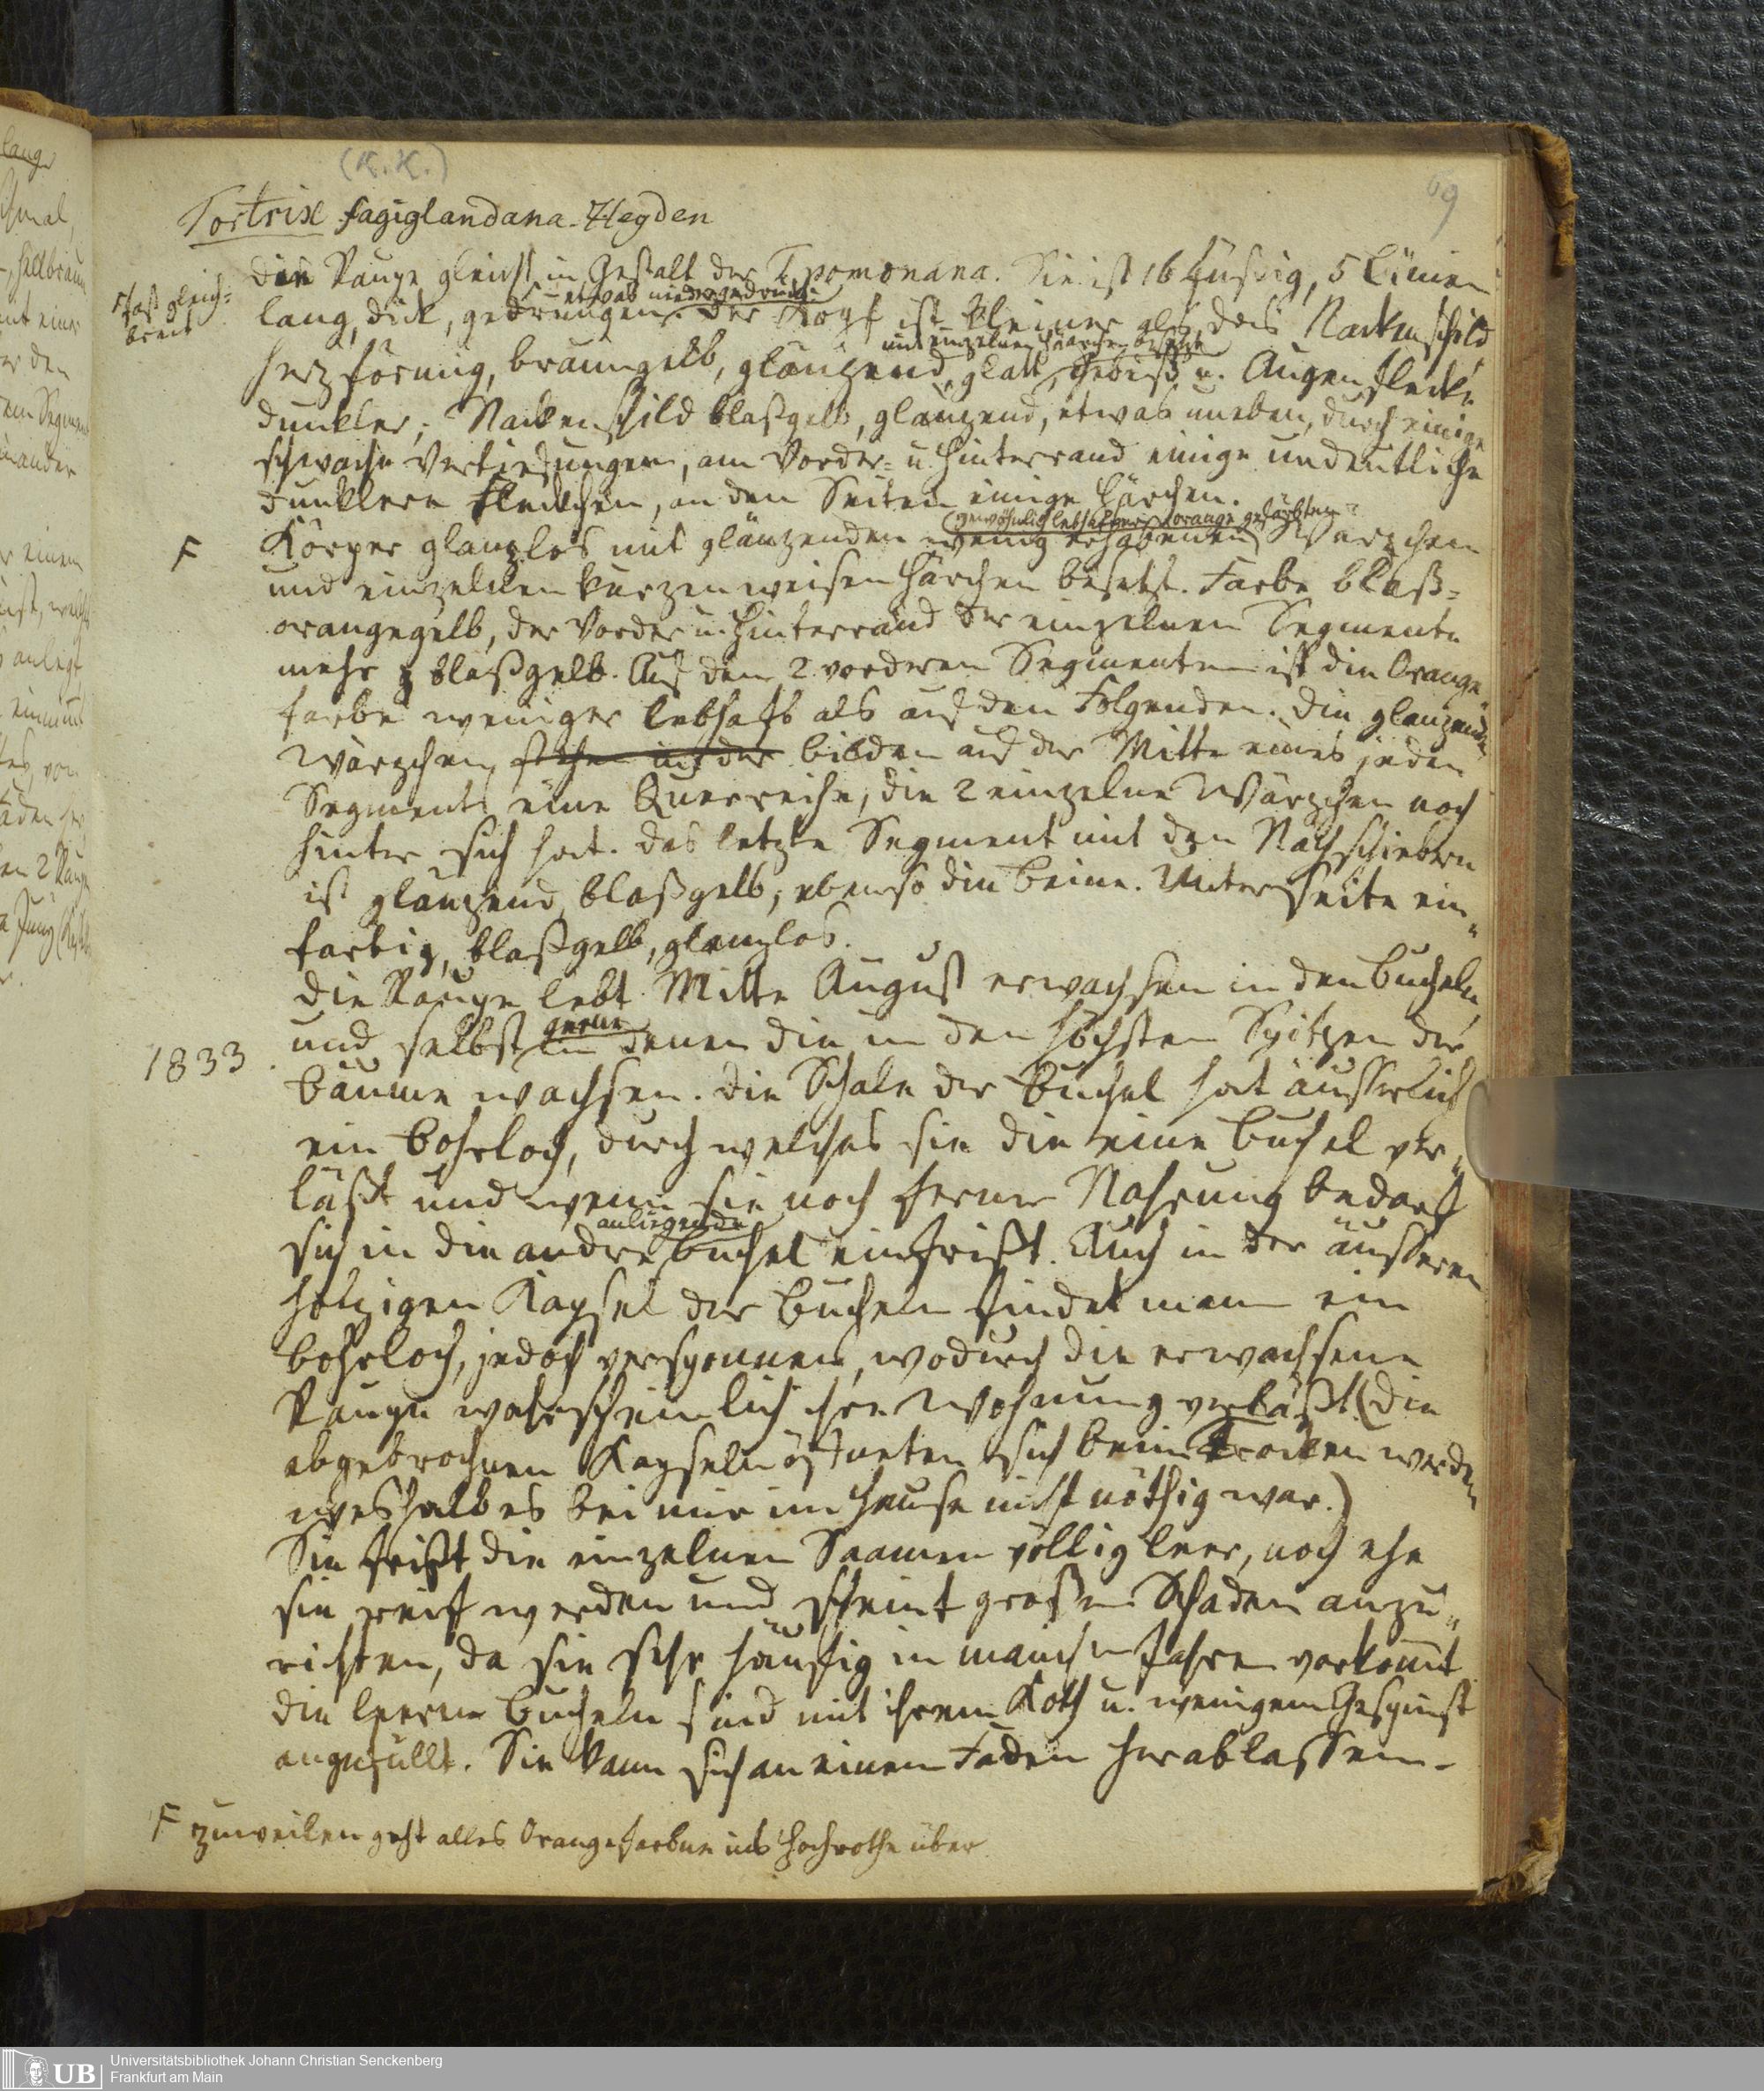 (K. K.)
69
Tortrix fagiglandana - Heyden
Die Raupe gleicht in Gestalt der T. pomonana. Sie ist 16 füßig, 5 Linien
fast gleich=
breit
etwas niedergedrückt
lang, dick, gedrungen. Der Kopf ist kleiner als das Nackenschild
mit einzelnen Häärchen besetzt
herzförmig, braungelb, glänzend, glatt, Gebiß u. Augenflecke
dunkler; Nackenschild blaßgelb, glänzend, etwas uneben, durch einige
schwache Vertiefungen, am Vorder= u. Hinterrand einige undeutliche
dunklere Fleckchen, an den Seiten einige Härchen.
gewöhnlich lebhafter orange gefärbten
F
Körper glanzlos mit glänzenden wenig erhabenen Wärzchen
und einzelnen kurzen weisen Härchen besetzt. Farbe blaß=
orangegelb, der Vorder u. Hinterrand der einzelnen Segmente
mehr blaßgelb. Auf den 2 vorderen Segmenten ist die Orange
farbe weniger lebhaft als auf den Folgenden. Die glänzenden
Wärzchen stehen auf der bilden auf der Mitte eines jeden
Segments eine Querreihe, die 2 einzelne Wärzchen noch
hinter sich hat. Das letzte Segment mit den Nachschiebern
ist glänzend blaßgelb, ebenso die Beine. Unterseite ein=
farbig, blaßgelb, glanzlos.
Die Raupe lebt Mitte August erwachsen in den Bucheln,
gerne
1833.
und selbst in denen die in den höchsten Spitzen der
Bäume wachsen. Die Schale der Buchel hat äusserlich
ein Bohrloch, durch welches sie die eine Buchel ver=
läßt und wenn sie noch ferner Nahrung bedarf
anliegende
sich in die andre Buchel einfrißt. Auch in der äusseren
holzigen Kapsel der Bucheln findet man ein
Bohrloch, jedoch versponnen, wodurch die erwachsene
Raupe wahrscheinlich ihre Wohnung verläßt (Die
abgebrochnen Kapseln öffneten sich beim Trocken werden
weshalb es bei mir im Hause nicht nöthig war.)
Sie frißt die einzelnen Saamen völlig leer, noch ehe
sie reif werden und scheint großen Schaden anzu=
richten, da sie sehr häufig in manchen Jahren vorkommt
Die leeren Bucheln sind mit ihrem Koth u. wenigem Gespinst
angefüllt. Sie kann sich an einem Faden herablassen.
F zuweilen geht alles Orangefarbne ins Hochrothe über
UB
Universitätsbibliothek Johann Christian Senckenberg
Frankfurt am Main